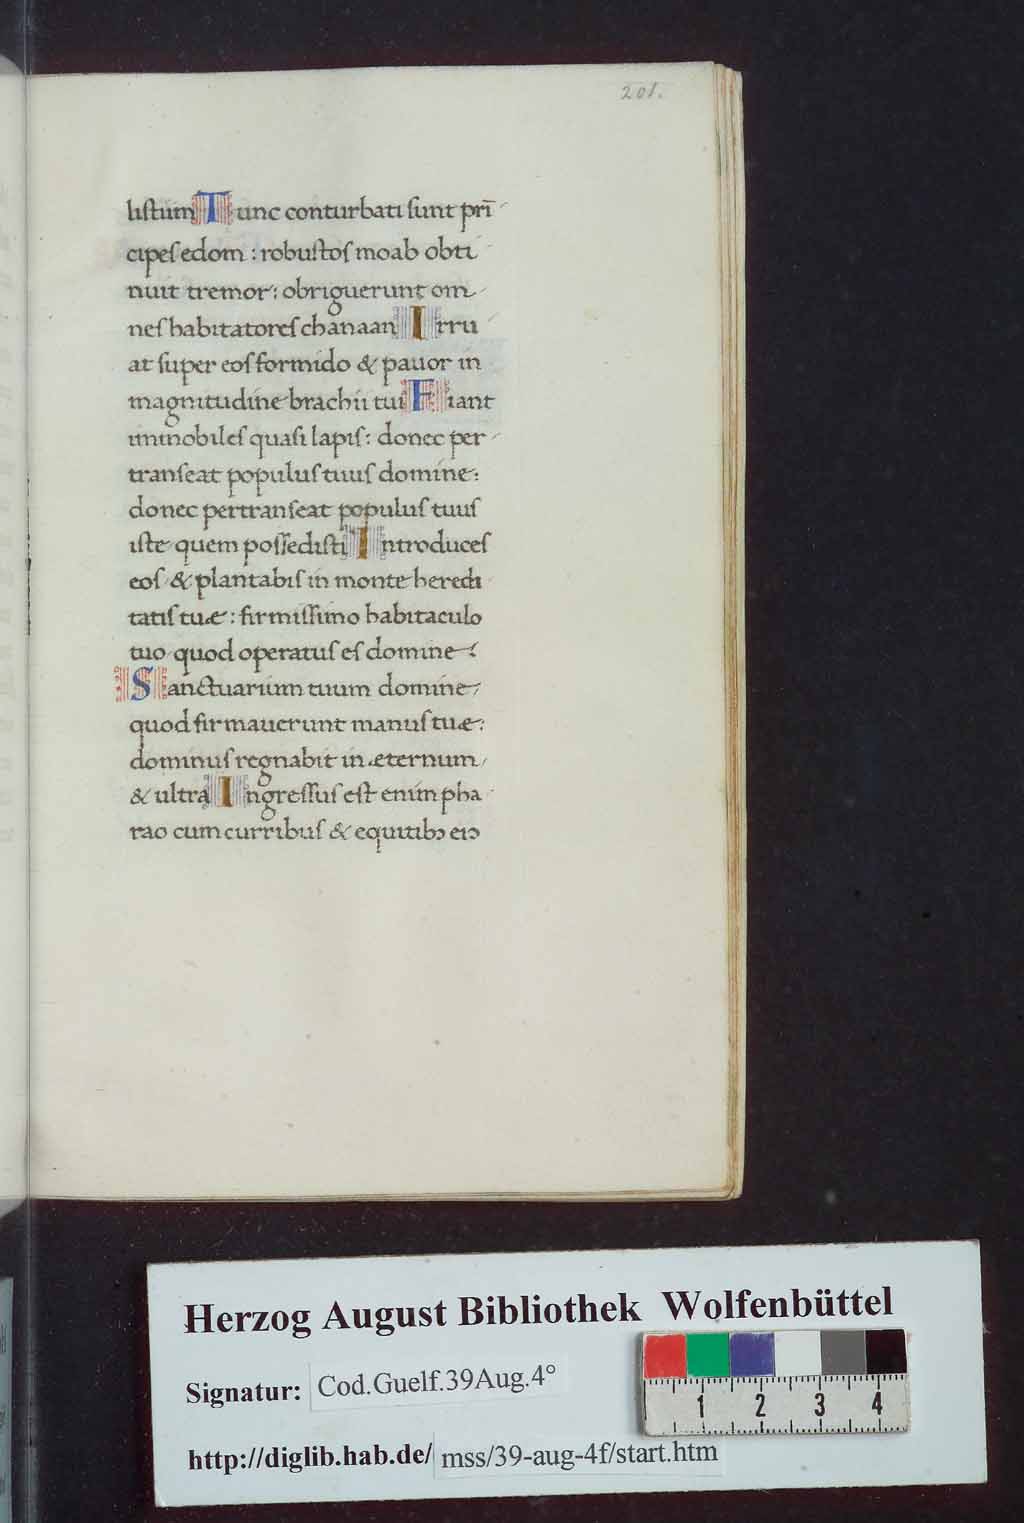 201.
liſtum Tunc conturbati ſunt prī
cipeſ edom : robuſtoſ moab obti
nuit tremor : obriguerunt om
neſ habitatoreſ chanaan Irru
at ſuper eoſ formido & pauor in
magnitudine brachii tui Fiant
immobileſ quaſi lapiſ : donec per
tranſeat populuſ tuuſ domine :
donec pertranſeat populuſ tuuſ
iſte quem poſſediſti Introduceſ
eoſ & plantabiſ in monte heredi
tatiſ tuæ : firmiſſimo habitaculo
tuo quod operatuſ eſ domine :
Sanctuarium tuum domine
quod firmauerunt manuſ tuæ :
dominuſ regnabit in æternum
& ultra Ingreſſuſ eſt enim pha
rao cum curribuſ & equitibꝫ eiꝰ
Herzog August Bibliothek Wolfenbüttel
Signatur: Cod.Guelf.39Aug.4°
1 2 3 4
http://diglib.hab.de/ mss/39-aug-4f/start.htm